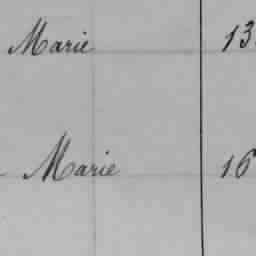 Marie 13
Marie 16